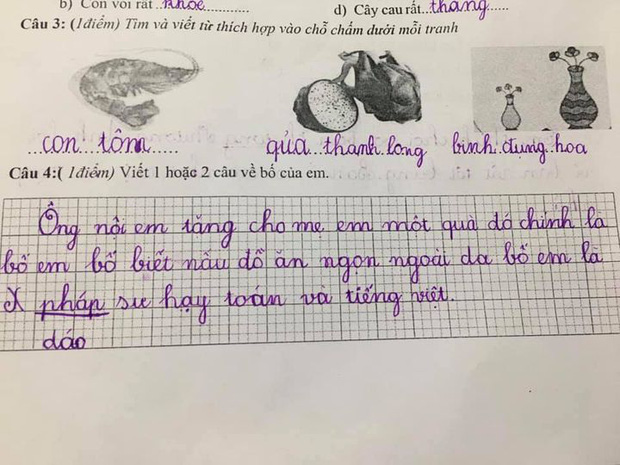 b) Con voi rất ..khoẻ............ d) Cây cau rất..thẳng......
Câu 3: (1điểm) Tìm và viết từ thích hợp vào chỗ chấm dưới mỗi tranh
...con tôm...... qủa thanh long bình đựng hoa
Câu 4:( 1điểm) Viết 1 hoặc 2 câu về bố của em.
Ông nội em tặng cho mẹ em một quà đó chính la
bố em bố biết nấu đồ ăn ngọn ngoài da bố em là
X pháp sư hạy toán và tiếng việt.
dáo